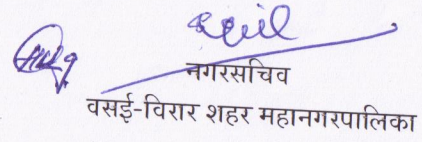 नगरसचिव
वसई-विरार शहर महानगरपालिका